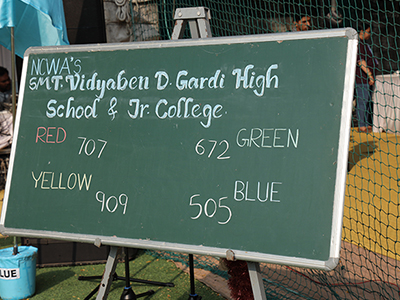 NCWA'S
SMT. Vidyaben D. Gardi High
School & Jr. College
RED 707
672 GREEN
YELLOW 909
505 BLUE
LUE